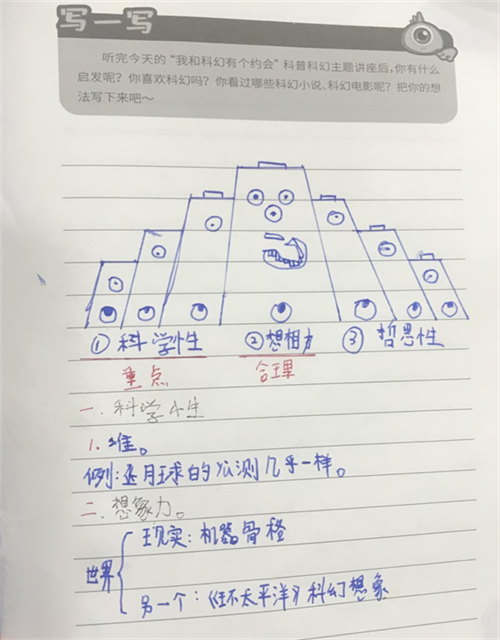 写一写
听完今天的“我和科幻有个约会”科普科幻主题讲座后,你有什么
启发呢?你喜欢科幻吗?你看过哪些科幻小说、科幻电影呢?把你的想
法写下来吧~
①科学性 ②想相力 ③哲思性
重点 合理
一.科学性
1.准。
例:与月球的观测几乎一样。
二.想象力。
世界
现实:机器骨骼
另一个:《环太平洋》科幻想象